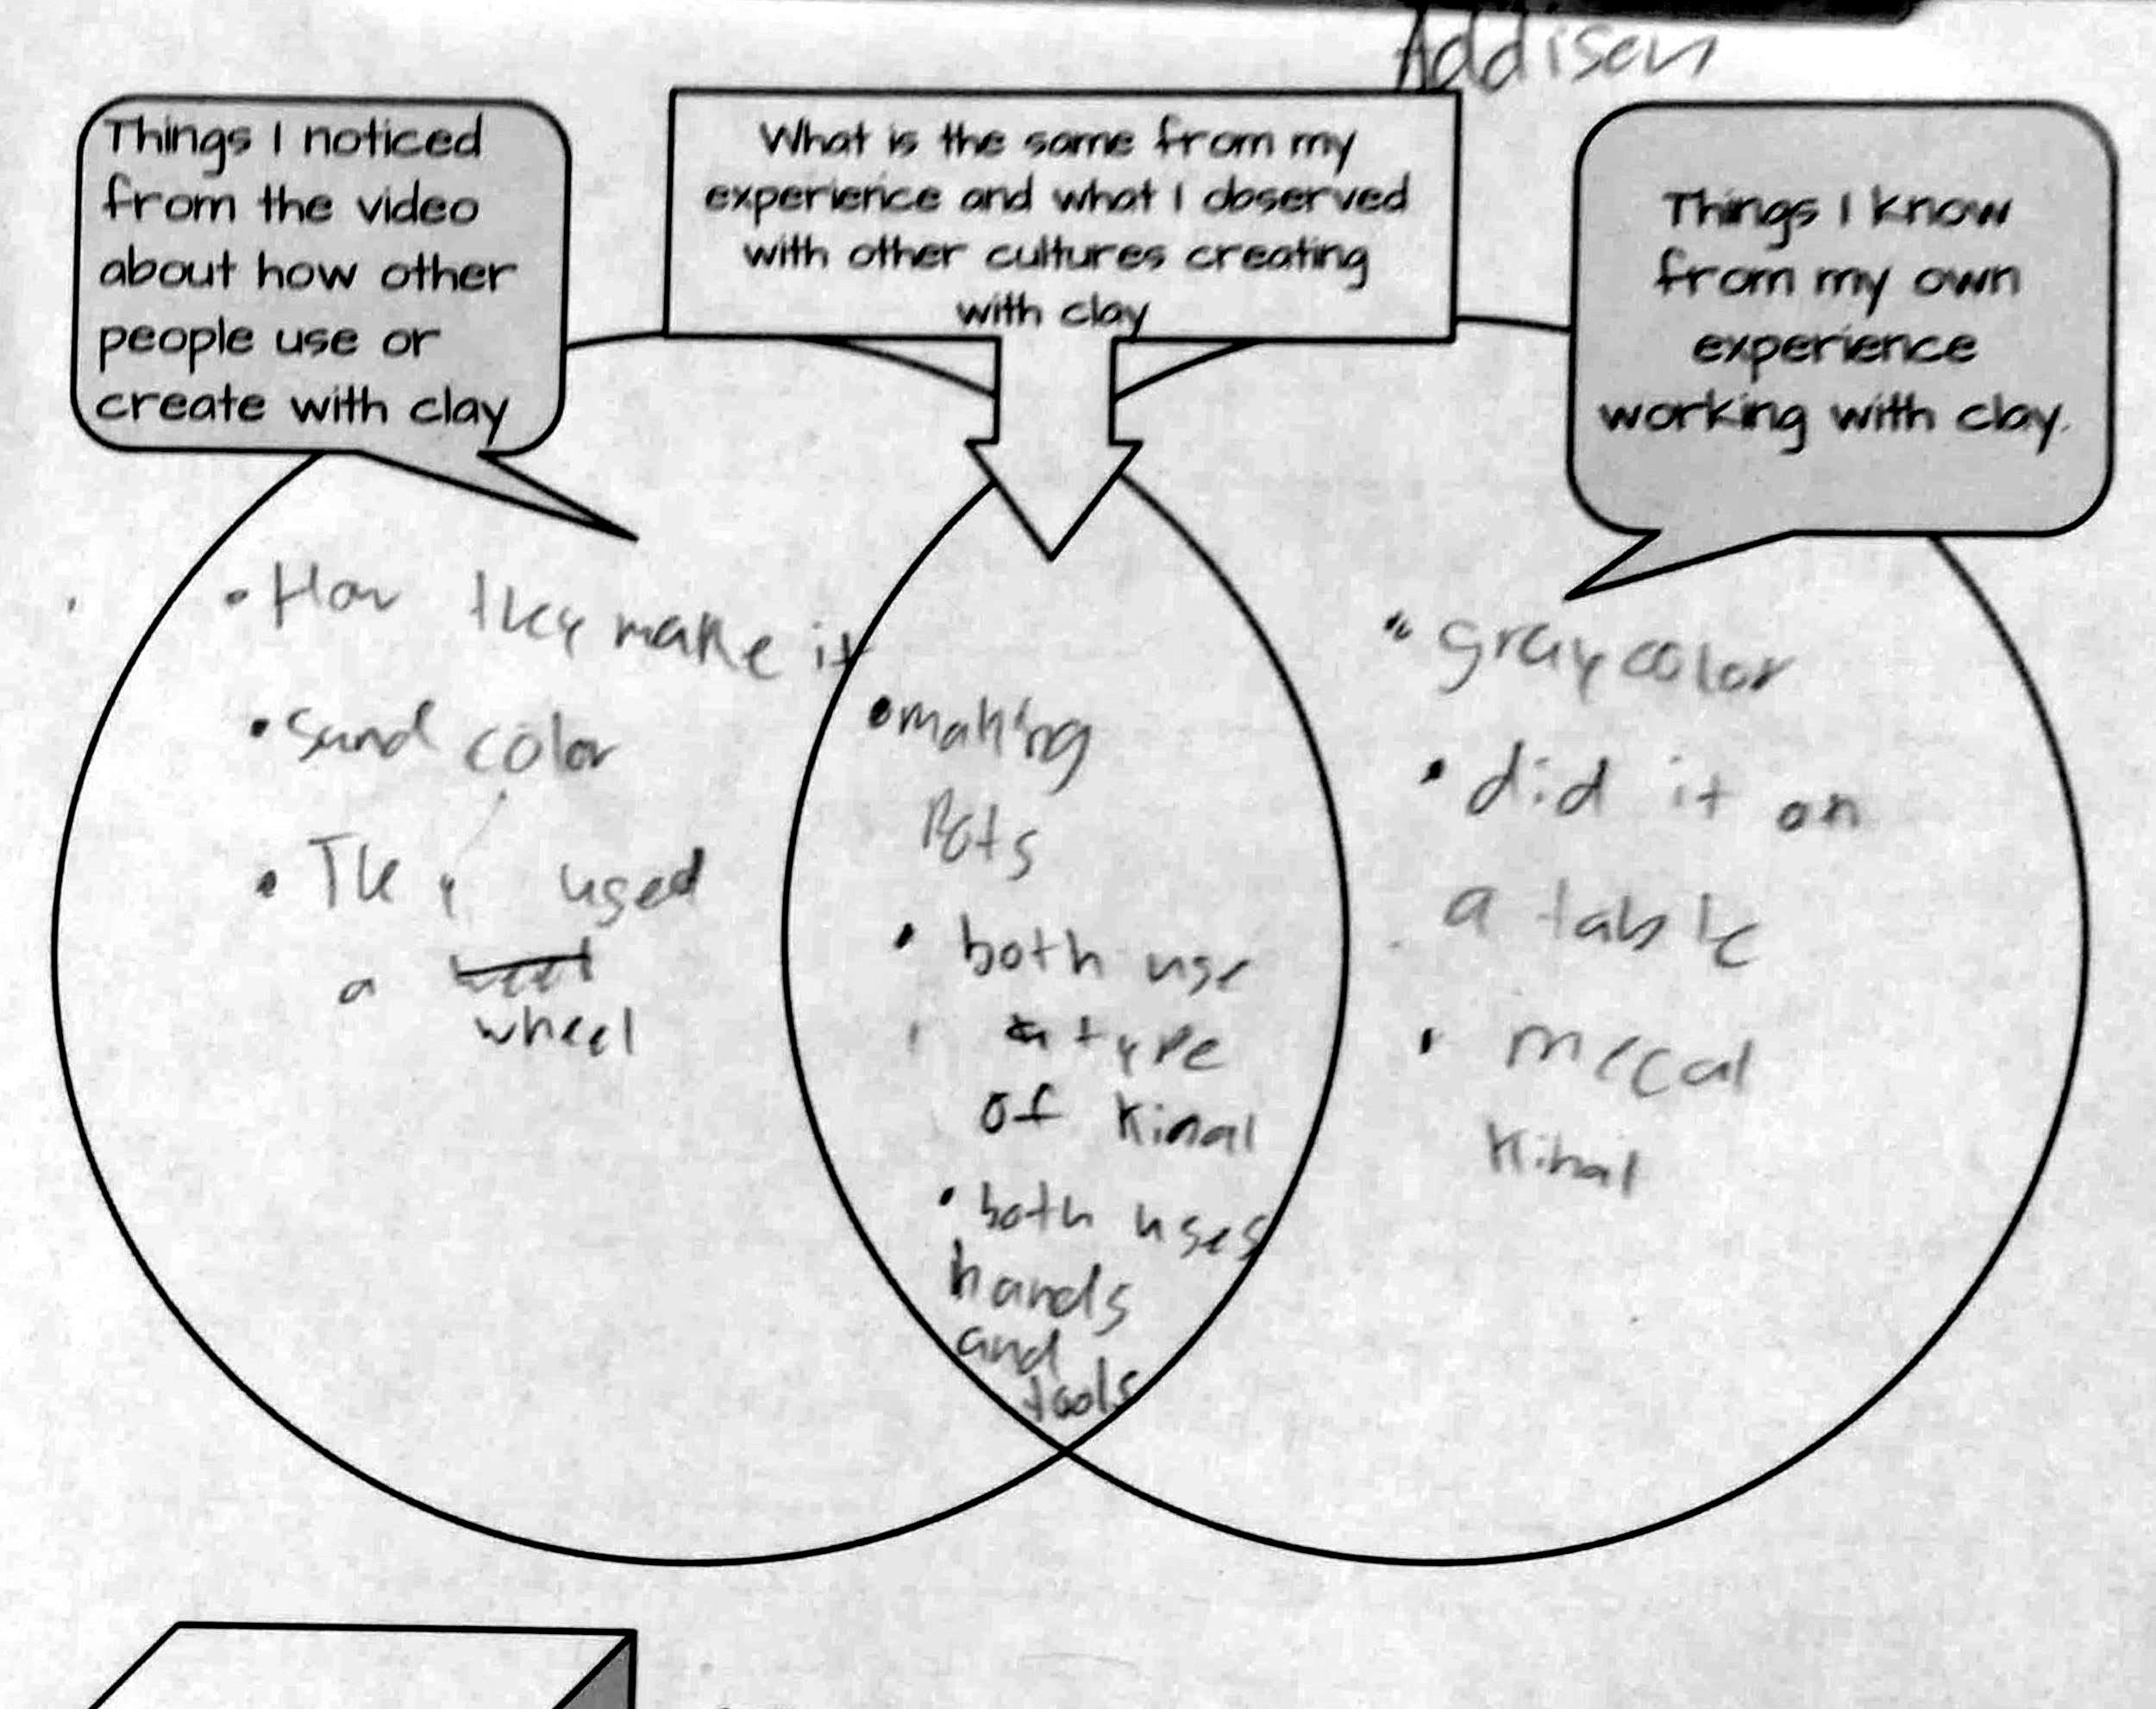 Addison
Things I noticed
from the video
about how other
people use or
create with clay
What is the same from my
experience and what I observed
with other cultures creating
with clay
Things I know
from my own
experience
working with clay.
• How they make it
• Sand color
• They used
a
wheel
• making
Pots
• both use
a type
of Kinal
• both uses
hands
and
tools
• gray color
• did it on
a table
• mecal
Kinal